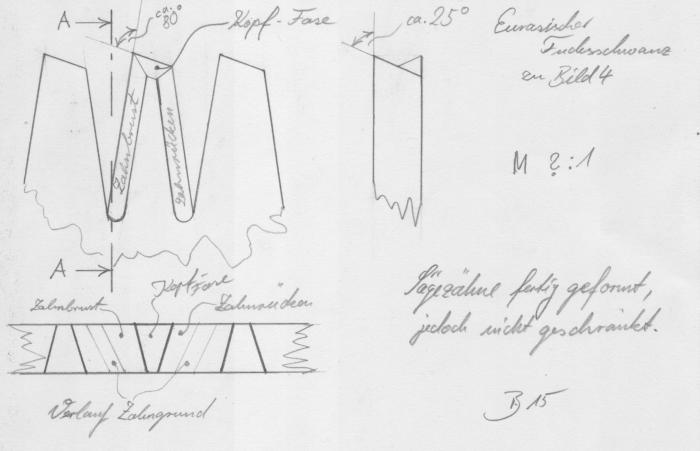 A
ca. 80°
Kopf-Fase
ca. 25°
Eurasischer
Fuchsschwanz
zu Bild 4
Zahnbrust
Zahnrücken
M ?:1
A
Zahnbrust
Kopffase
Zahnrücken
Sägezähne fertig geformt,
jedoch nicht geschränkt.
Verlauf Zahngrund
B 15